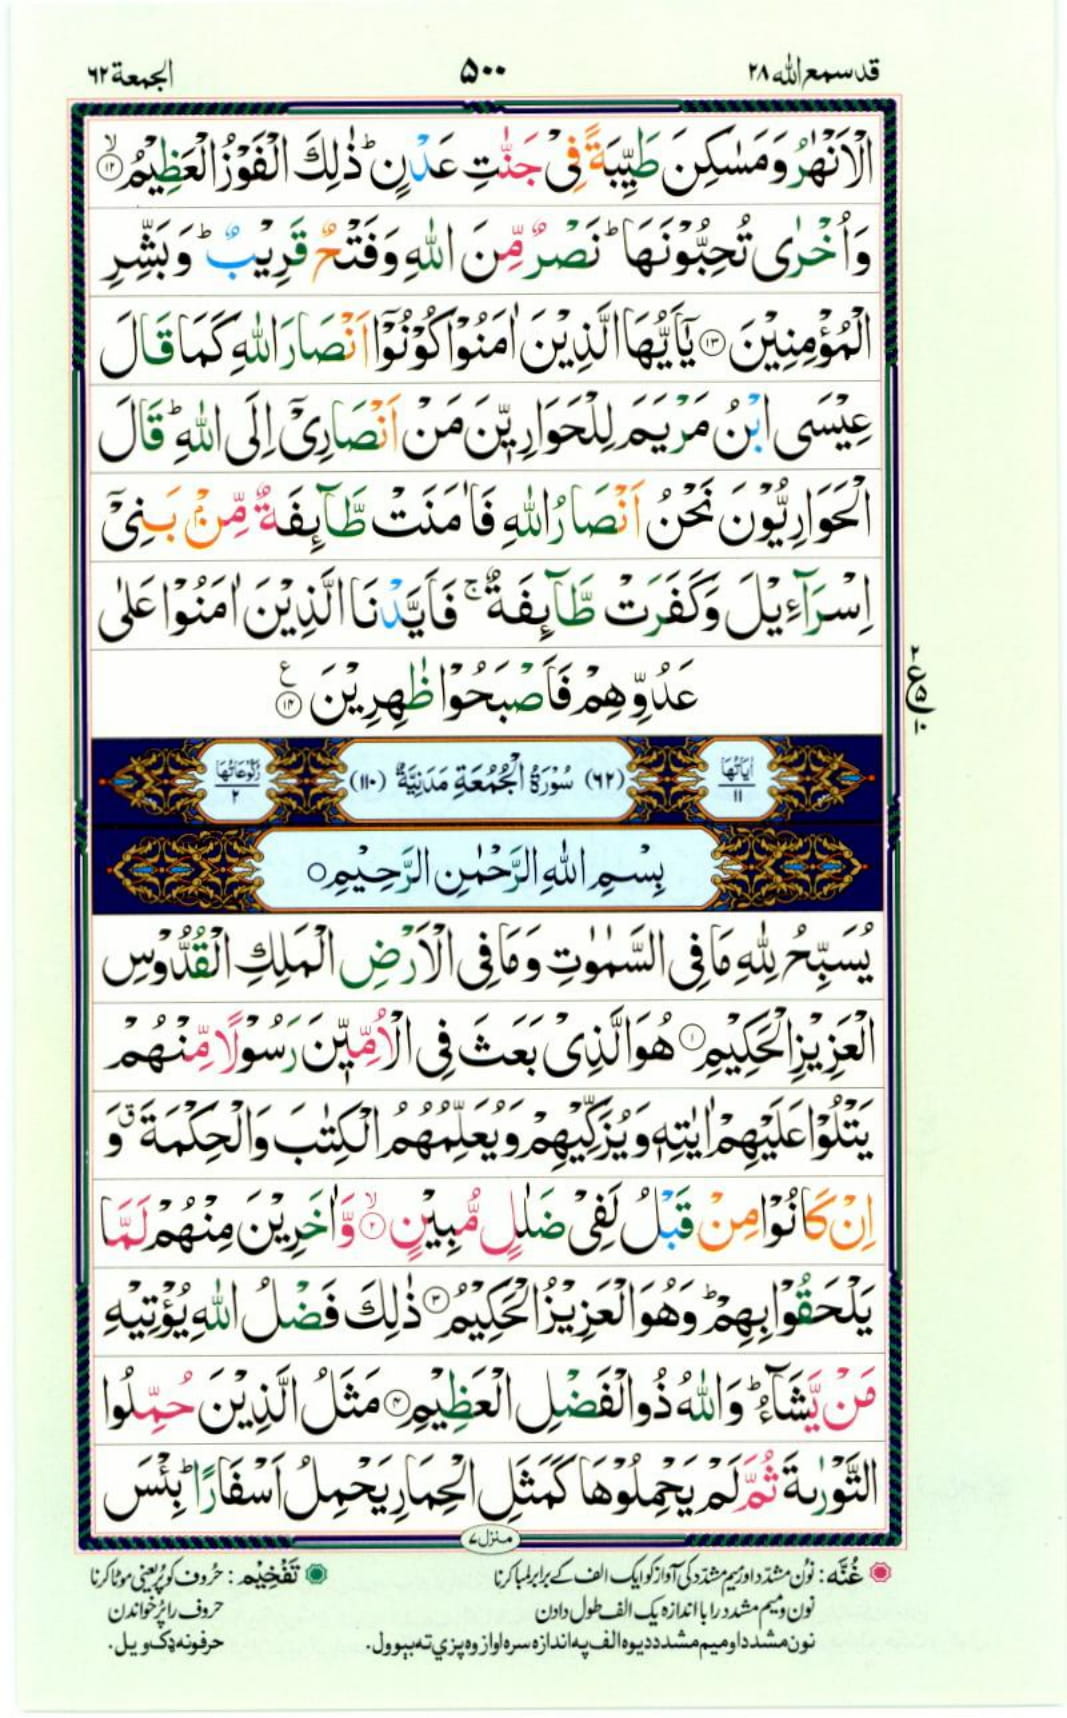 قد سمع الله ٢٨
٥٠٠
الجمعة ٦٢
الْاَنْهٰرُ وَمَسٰكِنَ طَيِّبَةً فِيْ جَنّٰتِ عَدْنٍ ؕ ذٰلِكَ الْفَوْزُ الْعَظِيْمُ ۙ﴿۱۲﴾
وَاُخْرٰى تُحِبُّوْنَهَا ؕ نَصْرٌ مِّنَ اللّٰهِ وَفَتْحٌ قَرِيْبٌ ؕ وَبَشِّرِ
الْمُؤْمِنِيْنَ ﴿۱۳﴾ يٰٓاَيُّهَا الَّذِيْنَ اٰمَنُوْا كُوْنُوْٓا اَنْصَارَ اللّٰهِ كَمَا قَالَ
عِيْسَى ابْنُ مَرْيَمَ لِلْحَوَارِيّٖنَ مَنْ اَنْصَارِيْٓ اِلَى اللّٰهِ ؕ قَالَ
الْحَوَارِيُّوْنَ نَحْنُ اَنْصَارُ اللّٰهِ فَاٰمَنَتْ طَّآئِفَةٌ مِّنْۢ بَنِيْٓ
اِسْرَآءِيْلَ وَكَفَرَتْ طَّآئِفَةٌ ۚ فَاَيَّدْنَا الَّذِيْنَ اٰمَنُوْا عَلٰى
عَدُوِّهِمْ فَاَصْبَحُوْا ظٰهِرِيْنَ ﴿۱۴﴾ ع
٢ ع ٥ ١٠
اٰيَاتُهَا ١١
(٦٢) سُوْرَةُ الْجُمُعَةِ مَدَنِيَّةٌ (١١٠)
رُكُوْعَاتُهَا ٢
بِسْمِ اللّٰهِ الرَّحْمٰنِ الرَّحِيْمِ ○
يُسَبِّحُ لِلّٰهِ مَا فِى السَّمٰوٰتِ وَمَا فِى الْاَرْضِ الْمَلِكِ الْقُدُّوْسِ
الْعَزِيْزِ الْحَكِيْمِ ﴿۱﴾ هُوَ الَّذِيْ بَعَثَ فِى الْاُمِّيّٖنَ رَسُوْلًا مِّنْهُمْ
يَتْلُوْا عَلَيْهِمْ اٰيٰتِهٖ وَيُزَكِّيْهِمْ وَيُعَلِّمُهُمُ الْكِتٰبَ وَالْحِكْمَةَ ۗ وَ
اِنْ كَانُوْا مِنْ قَبْلُ لَفِيْ ضَلٰلٍ مُّبِيْنٍ ۙ﴿۲﴾ وَّاٰخَرِيْنَ مِنْهُمْ لَمَّا
يَلْحَقُوْا بِهِمْ ؕ وَهُوَ الْعَزِيْزُ الْحَكِيْمُ ﴿۳﴾ ذٰلِكَ فَضْلُ اللّٰهِ يُؤْتِيْهِ
مَنْ يَّشَآءُ ؕ وَاللّٰهُ ذُو الْفَضْلِ الْعَظِيْمِ ﴿۴﴾ مَثَلُ الَّذِيْنَ حُمِّلُوا
التَّوْرٰىةَ ثُمَّ لَمْ يَحْمِلُوْهَا كَمَثَلِ الْحِمَارِ يَحْمِلُ اَسْفَارًا ؕ بِئْسَ
منزل ٧
غُنَّه: نون مشدد اور میم مشدد کی آواز کو ایک الف کے برابر لمبا کرنا
نون و میم مشدد را با اندازه یک الف طول دادن
نون مشدد او میم مشدد د یوه الف په اندازه سره اواز وه پزي ته بیوول.
تَفْخِيْم: حُروف کو پُر یعنی موٹا کرنا
حروف را پُر خواندن
حرفونه ډک ویل.